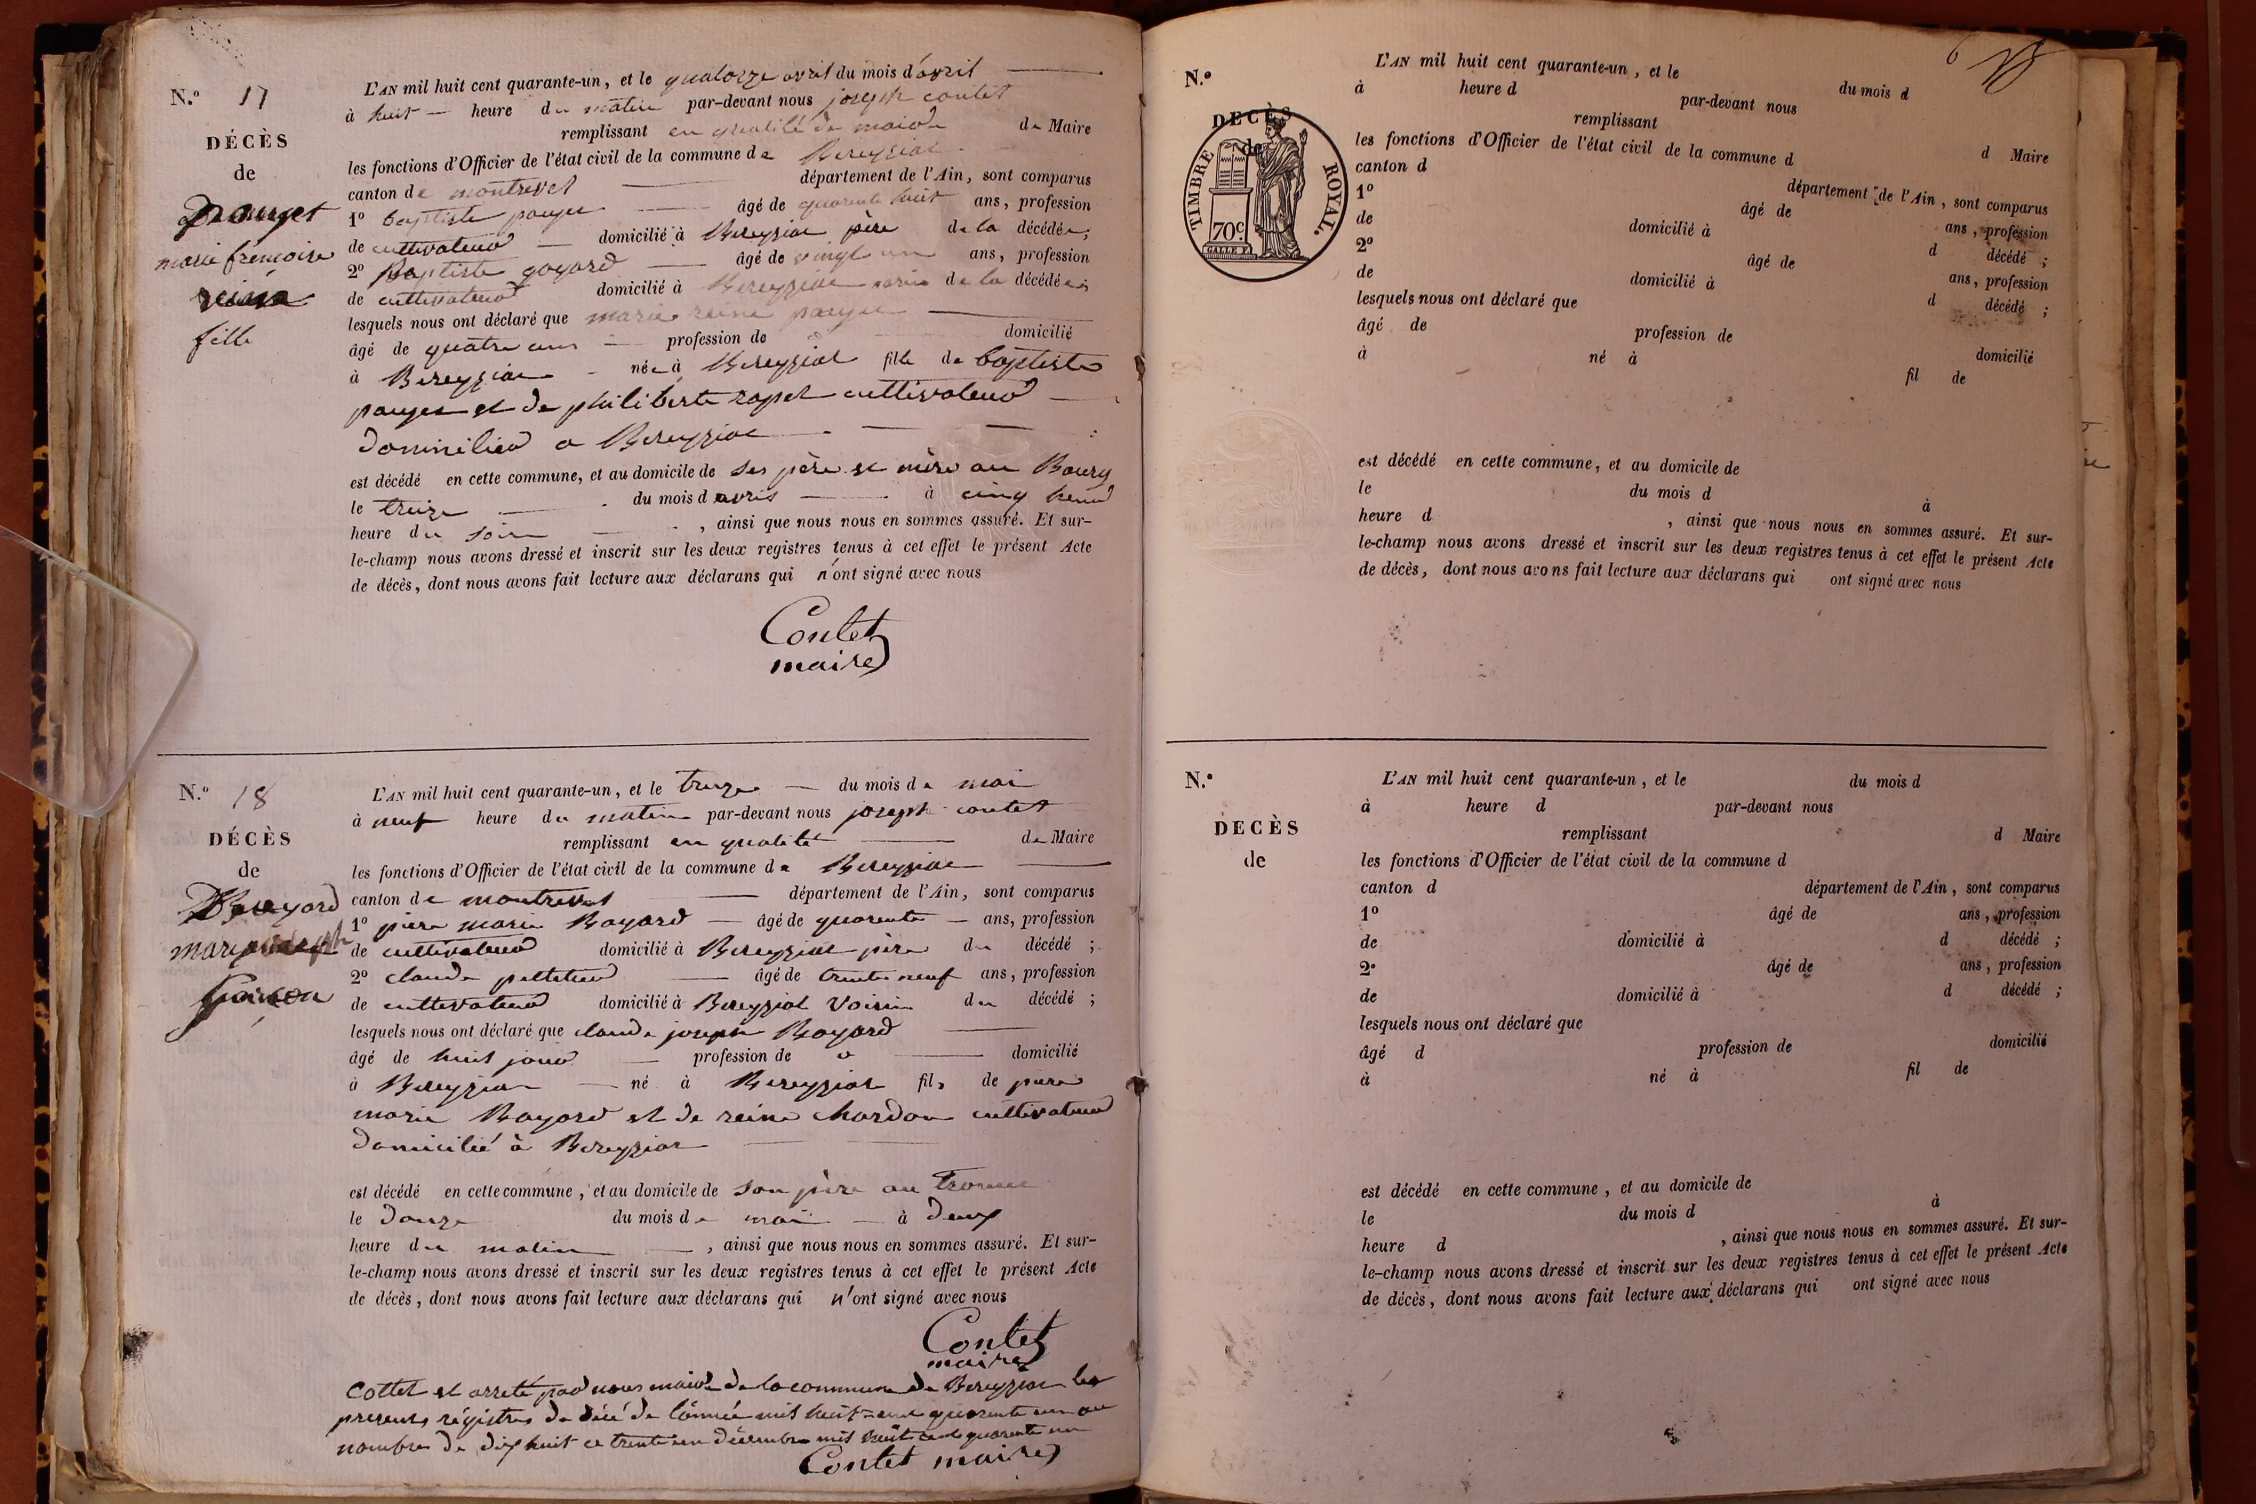 N.o 17
DÉCÈS
de
pouget
marie francoise
reine
fille
L'AN mil huit cent quarante-un, et le quatorze avril du mois d'avril
à huit heure du matin par-devant nous joseph contet
remplissant en qualité de maire de Maire
les fonctions d'Officier de l'état civil de la commune de Bereyziat
canton de montrevel département de l'Ain, sont comparus
1o baptiste pouget âgé de quarente huit ans, profession
de cultivateur domicilié à Bereyziat père de la décédée;
2o Baptiste goyard âgé de vingt un ans, profession
de cultivateur domicilié à Bereyziat de la décédée;
lesquels nous ont déclaré que marie reine pouget
âgé de quatre ans profession de domicilié
à Bereyziat née à Bereyziat fille de baptiste
pouget et de philiberte cultivateur
domicilier a Bereyziat
est décédé en cette commune, et au domicile de ses père et mère au Bourg
le treize du mois d avril à cinq heur
heure du soir , ainsi que nous nous en sommes assuré. Et sur-
le-champ nous avons dressé et inscrit sur les deux registres tenus à cet effet le présent Acte
de décès, dont nous avons fait lecture aux déclarans qui n'ont signé avec nous
Contet
maire
N.o 18
DÉCÈS
de
Boyard
marie joseph
garcon
L'AN mil huit cent quarante-un, et le treize du mois de mai
à neuf heure du matin par-devant nous joseph contet
remplissant en qualité de Maire
les fonctions d'Officier de l'état civil de la commune de Bereyziat
canton de montrevel département de l'Ain, sont comparus
1o pierre marie Boyard âgé de quarente ans, profession
de cultivateur domicilié à Bereyziat père du décédé;
2o claude pelletier âgé de trente neuf ans, profession
de cultivateur domicilié à Bereyziat voisin du décédé;
lesquels nous ont déclaré que claude joseph Boyard
âgé de huit jour profession de o domicilié
à Bereyziat né à Bereyziat fils de pierre
marie Boyard et de reine chardon cultivateur
domicilié à Bereyziat
est décédé en cette commune, et au domicile de son père au
le douze du mois de mai à deux
heure du matin , ainsi que nous nous en sommes assuré. Et sur-
le-champ nous avons dressé et inscrit sur les deux registres tenus à cet effet le présent Acte
de décès, dont nous avons fait lecture aux déclarans qui n'ont signé avec nous
Contet
maire
Cottet et arreté par nous maire de la commune de Bereyziat les
presents régistres de décé de l'année mil huit cent quarente un au
nombre de dix huit ce trente un décembre mil huit cent quarente un
Contet maire
6
N.o
DECÈS
de
TIMBRE ROYAL.
70c.
GALLE F.
L'AN mil huit cent quarante-un, et le du mois d
à heure d par-devant nous
remplissant d Maire
les fonctions d'Officier de l'état civil de la commune d
canton d département de l'Ain, sont comparus
1o âgé de ans, profession
de domicilié à d décédé;
2o âgé de ans, profession
de domicilié à d décédé;
lesquels nous ont déclaré que
âgé de profession de domicilié
à né à fil de
est décédé en cette commune, et au domicile de
le du mois d à
heure d , ainsi que nous nous en sommes assuré. Et sur-
le-champ nous avons dressé et inscrit sur les deux registres tenus à cet effet le présent Acte
de décès, dont nous avons fait lecture aux déclarans qui ont signé avec nous
N.o
DECÈS
de
L'AN mil huit cent quarante-un, et le du mois d
à heure d par-devant nous
remplissant d Maire
les fonctions d'Officier de l'état civil de la commune d
canton d département de l'Ain, sont comparus
1o âgé de ans, profession
de domicilié à d décédé;
2o âgé de ans, profession
de domicilié à d décédé;
lesquels nous ont déclaré que
âgé d profession de domicilié
à né à fil de
est décédé en cette commune, et au domicile de
le du mois d à
heure d , ainsi que nous nous en sommes assuré. Et sur-
le-champ nous avons dressé et inscrit sur les deux registres tenus à cet effet le présent Acte
de décès, dont nous avons fait lecture aux déclarans qui ont signé avec nous